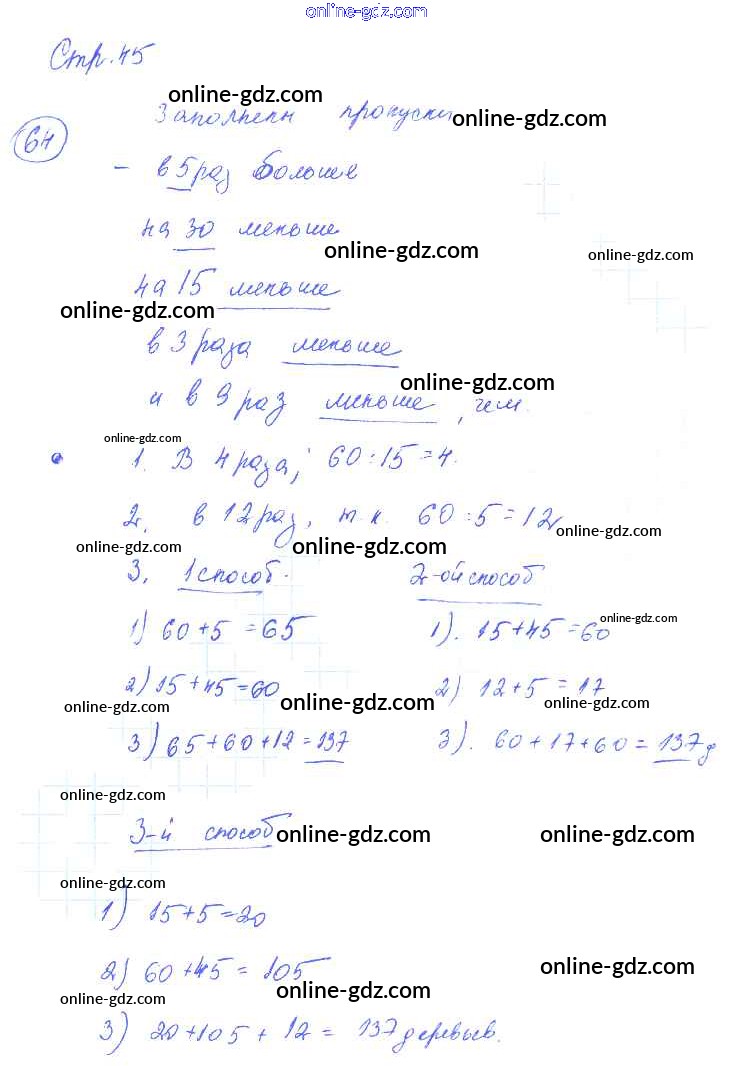 online-gdz.com
Стр. 45
online-gdz.com
Заполнены пропуски online-gdz.com
64
– в 5 раз больше
на 30 меньше
online-gdz.com online-gdz.com
на 15 меньше
online-gdz.com
в 3 раза меньше
online-gdz.com
и в 9 раз меньше, чем.
online-gdz.com
1. В 4 раза; 60:15=4.
2. в 12 раз, т.к. 60:5=12
online-gdz.com
online-gdz.com online-gdz.com
3. 1 способ. 2-ой способ
1) 60+5=65 1). 15+45=60 online-gdz.com
2) 15+45=60 2) 12+5=17
online-gdz.com online-gdz.com online-gdz.com
3) 65+60+12=137 3). 60+17+60=137д
online-gdz.com
3-й способ online-gdz.com online-gdz.com
online-gdz.com
1) 15+5=20
2) 60+45=105 online-gdz.com
online-gdz.com online-gdz.com
3) 20+105+12=137 деревьев.